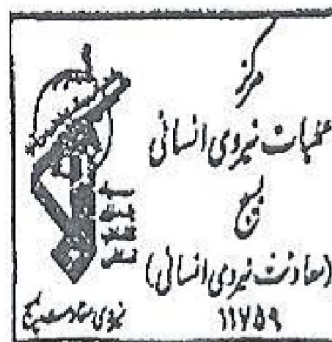 مرکز
عملیات نیروی انسانی
بسیج
(معاونت نیروی انسانی)
۱۱۷۵۹
نیروی مقاومت بسیج